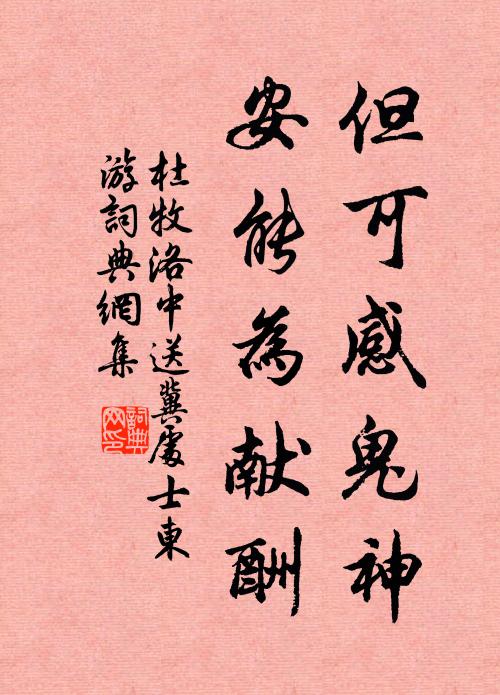 但可感鬼神
安能為献酬
杜牧洛中送冀處士東
游詞典網集
詞典
网印